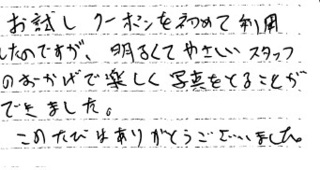 お試しクーポンを初めて利用
したのですが、明るくてやさしいスタッフ
のおかげで楽しく写真をとることが
できました。
このたびはありがとうございました。